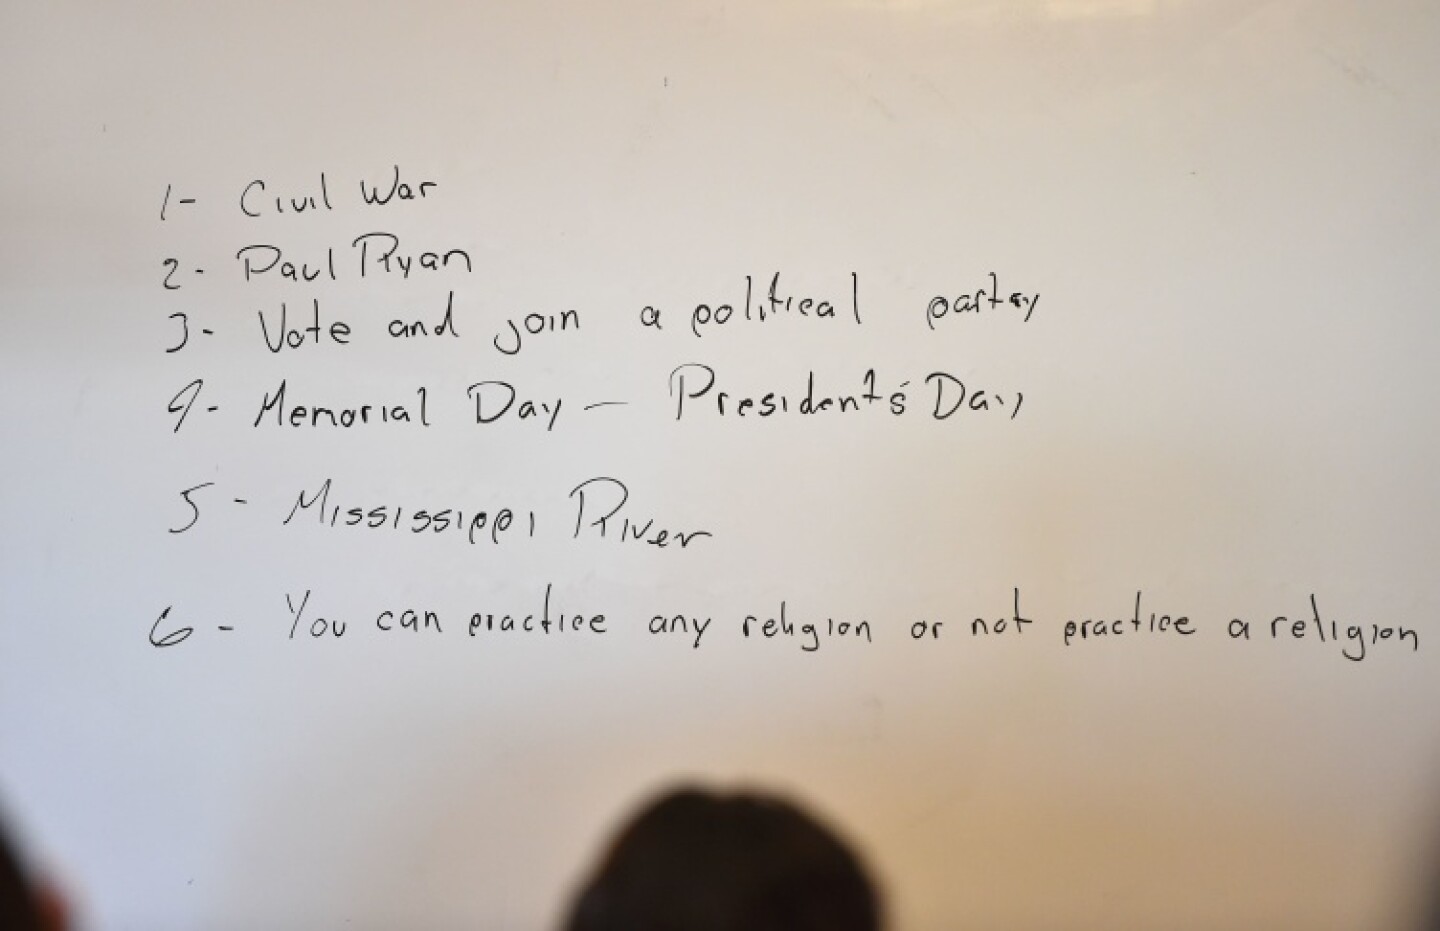 1- Civil War
2- Paul Ryan
3- Vote and join a political party
4- Memorial Day — President's Day
5- Mississippi River
6- You can practice any religion or not practice a religion